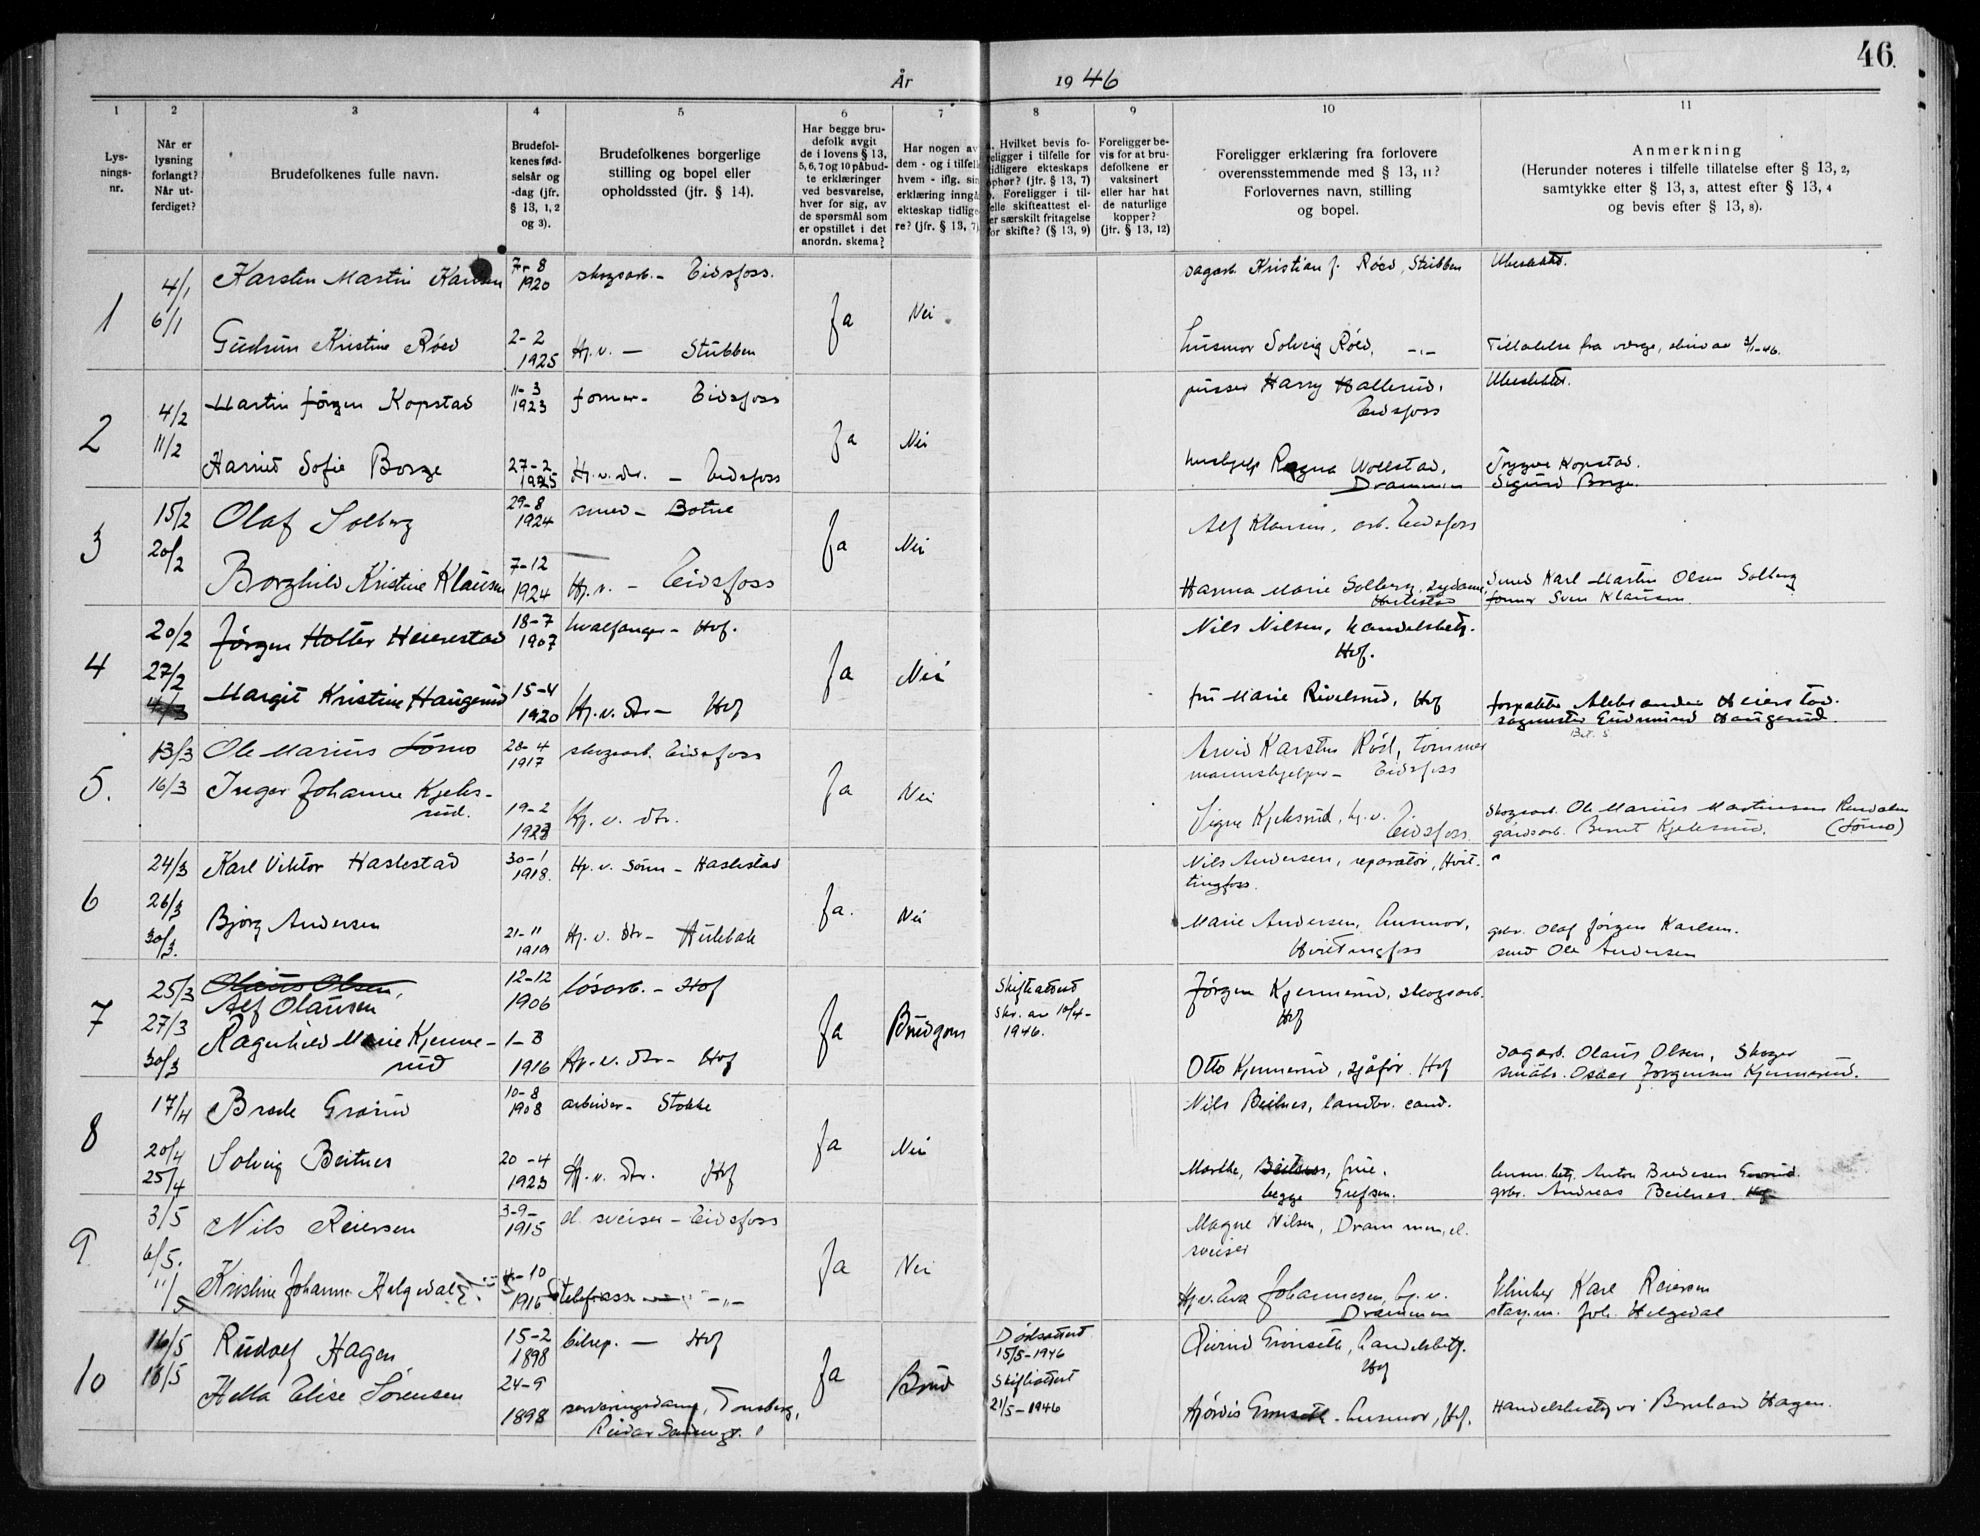 46.
År 1946
1
2
3
4
5
6
7
8
9
10
11
Lys-
nings-
nr.
Når er
lysning
forlangt?
Når ut-
ferdiget?
Brudefolkenes fulle navn.
Brudefol-
kenes fød-
selsår og
-dag (jfr.
§ 13, 1, 2
og 3).
Brudefolkenes borgerlige
stilling og bopel eller
opholdssted (jfr. § 14).
Har begge bru-
defolk avgit
de i lovens § 13,
5, 6, 7 og 10 påbud-
te erklæringer
ved besvarelse,
hver for sig, av
de spørsmål som
er opstillet i det
anordn. skema?
Har nogen av
dem - og i tilfelle
hvem - iflg. sin
erklæring inngå
ekteskap tidlige-
re? (jfr. § 13, 7)
a. Hvilket bevis fo-
religger i tilfelle for
tidligere ekteskaps
ophør? (jfr. § 13, 7)
b. Foreligger i til-
felle skifteattest el-
ler særskilt fritagelse
for skifte? (§ 13, 9)
Foreligger be-
vis for at bru-
defolkene er
vaksinert
eller har hat
de naturlige
kopper?
(jfr. § 13, 12)
Foreligger erklæring fra forlovere
overensstemmende med § 13, 11?
Forlovernes navn, stilling
og bopel.
Anmerkning
(Herunder noteres i tilfelle tillatelse efter § 13, 2,
samtykke efter § 13, 3, attest efter § 13, 4
og bevis efter § 13, 8).
1
4/1
6/1
Karsten Martin Karlsen
7-8
1920
skogsarb. - Eidsfoss.
Ja
Nei
sagarb. Kristian J. Røed, Stubben
Gudrun Kristine Røed
2-2
1925
Hj.v. - Stubben
husmor Solveig Røed, -"-
Tillatelse fra verge, 3/1-46.
2
4/2
11/2
Martin Jørgen Kopstad
11-3
1923
former - Eidsfoss
Ja
Nei
pusser Harry Hallerud,
Eidsfoss
Harriet Sofie Borge
27-2
1925
Hj.v. dtr. - Eidsfoss
hushjelp Ragna Wollstad,
Drammen
Trygve Kopstad.
Sigurd Borge.
3
15/2
20/2
Olaf Solberg
29-8
1924
smed - Botne
Ja
Nei
Alf Klausen, arb. Eidsfoss
Borghild Kristine Klausen
7-12
1924
Hj.v. - Eidsfoss
Hanna Marie Solberg, sydame,
Smed Karl Martin Olsen Solberg
former Sven Klausen.
4
20/2
27/2
Jørgen Holter Heierstad
18-7
1907
hvalfanger - Hof.
Ja
Nei
Nils Nilsen, handelsbetj.
Hof.
Margit Kristine Haugerud
15-4
1920
Hj.v. dtr - Hof
fru Marie Rivelsrud, Hof
forpakter Aleksander Heierstad.
sagmester Gudmund Haugerud.
5.
13/3
16/3
Ole Marius Sørmo
28-4
1917
skogsarb. Eidsfoss
Ja
Nei
Arvid Karsten Rød, tømmer
mannshjelper - Eidsfoss
Inger Johanne Kjeks-
rud.
19-2
1923
Hj.v. dtr.
Signe Kjeksrud, hj.v.
Eidsfoss.
skogsarb. Ole Marius Martinsen
gårdsarb. Bernt Kjeksrud. (Sørmo)
6
24/3
26/3
30/3.
Karl Viktor Haslestad
30-1
1918.
Hj.v. sønn - Haslestad
Ja.
Nei
Nils Andersen, reparatør, Hvit-
tingfoss.
Bjørg Andersen
21-11
1919
Hj.v. dtr - Hulebak
Marie Andersen, husmor,
Hvittingfoss
gbr. Olaf Jørgen Karlsen.
smed Ole Andersen
7
25/3
27/3
30/3
Olaus Olsen,
Alf Olaussen
12-12
1906
løsarb. - Hof
Ja
Brudgom
Skifteattest
skr. av 10/4-
1946.
Jørgen Kjennerud, skogsarb.
Hof
Ragnhild Marie Kjenne-
rud
1-3
1916
Hj.v. dtr - Hof
Otto Kjennerud, sjåfør. Hof
sagarb. Olaus Olsen, Skoger
småbr. Oskar Jørgensen Kjennerud.
8
17/4
20/4
25/4
Brede Grorud
10-8
1908
arbeider - Stokke
Ja
Nei
Nils Beitnes, landbr. cand.
Solveig Beitnes
20-4
1923
Hj.v. dtr. Hof
Marthe, Beitnes, frue,
begge Grefsen.
Anton Bredesen Grorud.
gbr. Andreas Beitnes. Hof
9.
3/5
6/5.
11/5
Nils Reiersen
3-9-
1915
el. sveiser - Eidsfoss
Ja
Nei
Magne Nilsen, Drammen, el.
sveiser
Kristine Johanne Helgedal
4-10
1916
-"-
Hj.v. Eva Johannesen, hj.v.
Drammen
Karl Reiersen
stasj.m. Joh. Helgedal
10
16/5
16/5
Rudolf Hagen
15-2
1898
bilrep. - Hof
Ja
Brud
Dødsattest
15/5-1946
Skifteattest
21/5-1946
Eivind Gronseth, handelsbetj.
Hof
Hella Elise Sørensen
24-9
1898
serveringsdame, Tønsberg,
Hjørdis Gronseth - husmor, Hof.
Handelsbestyrer Bernhard Hagen.